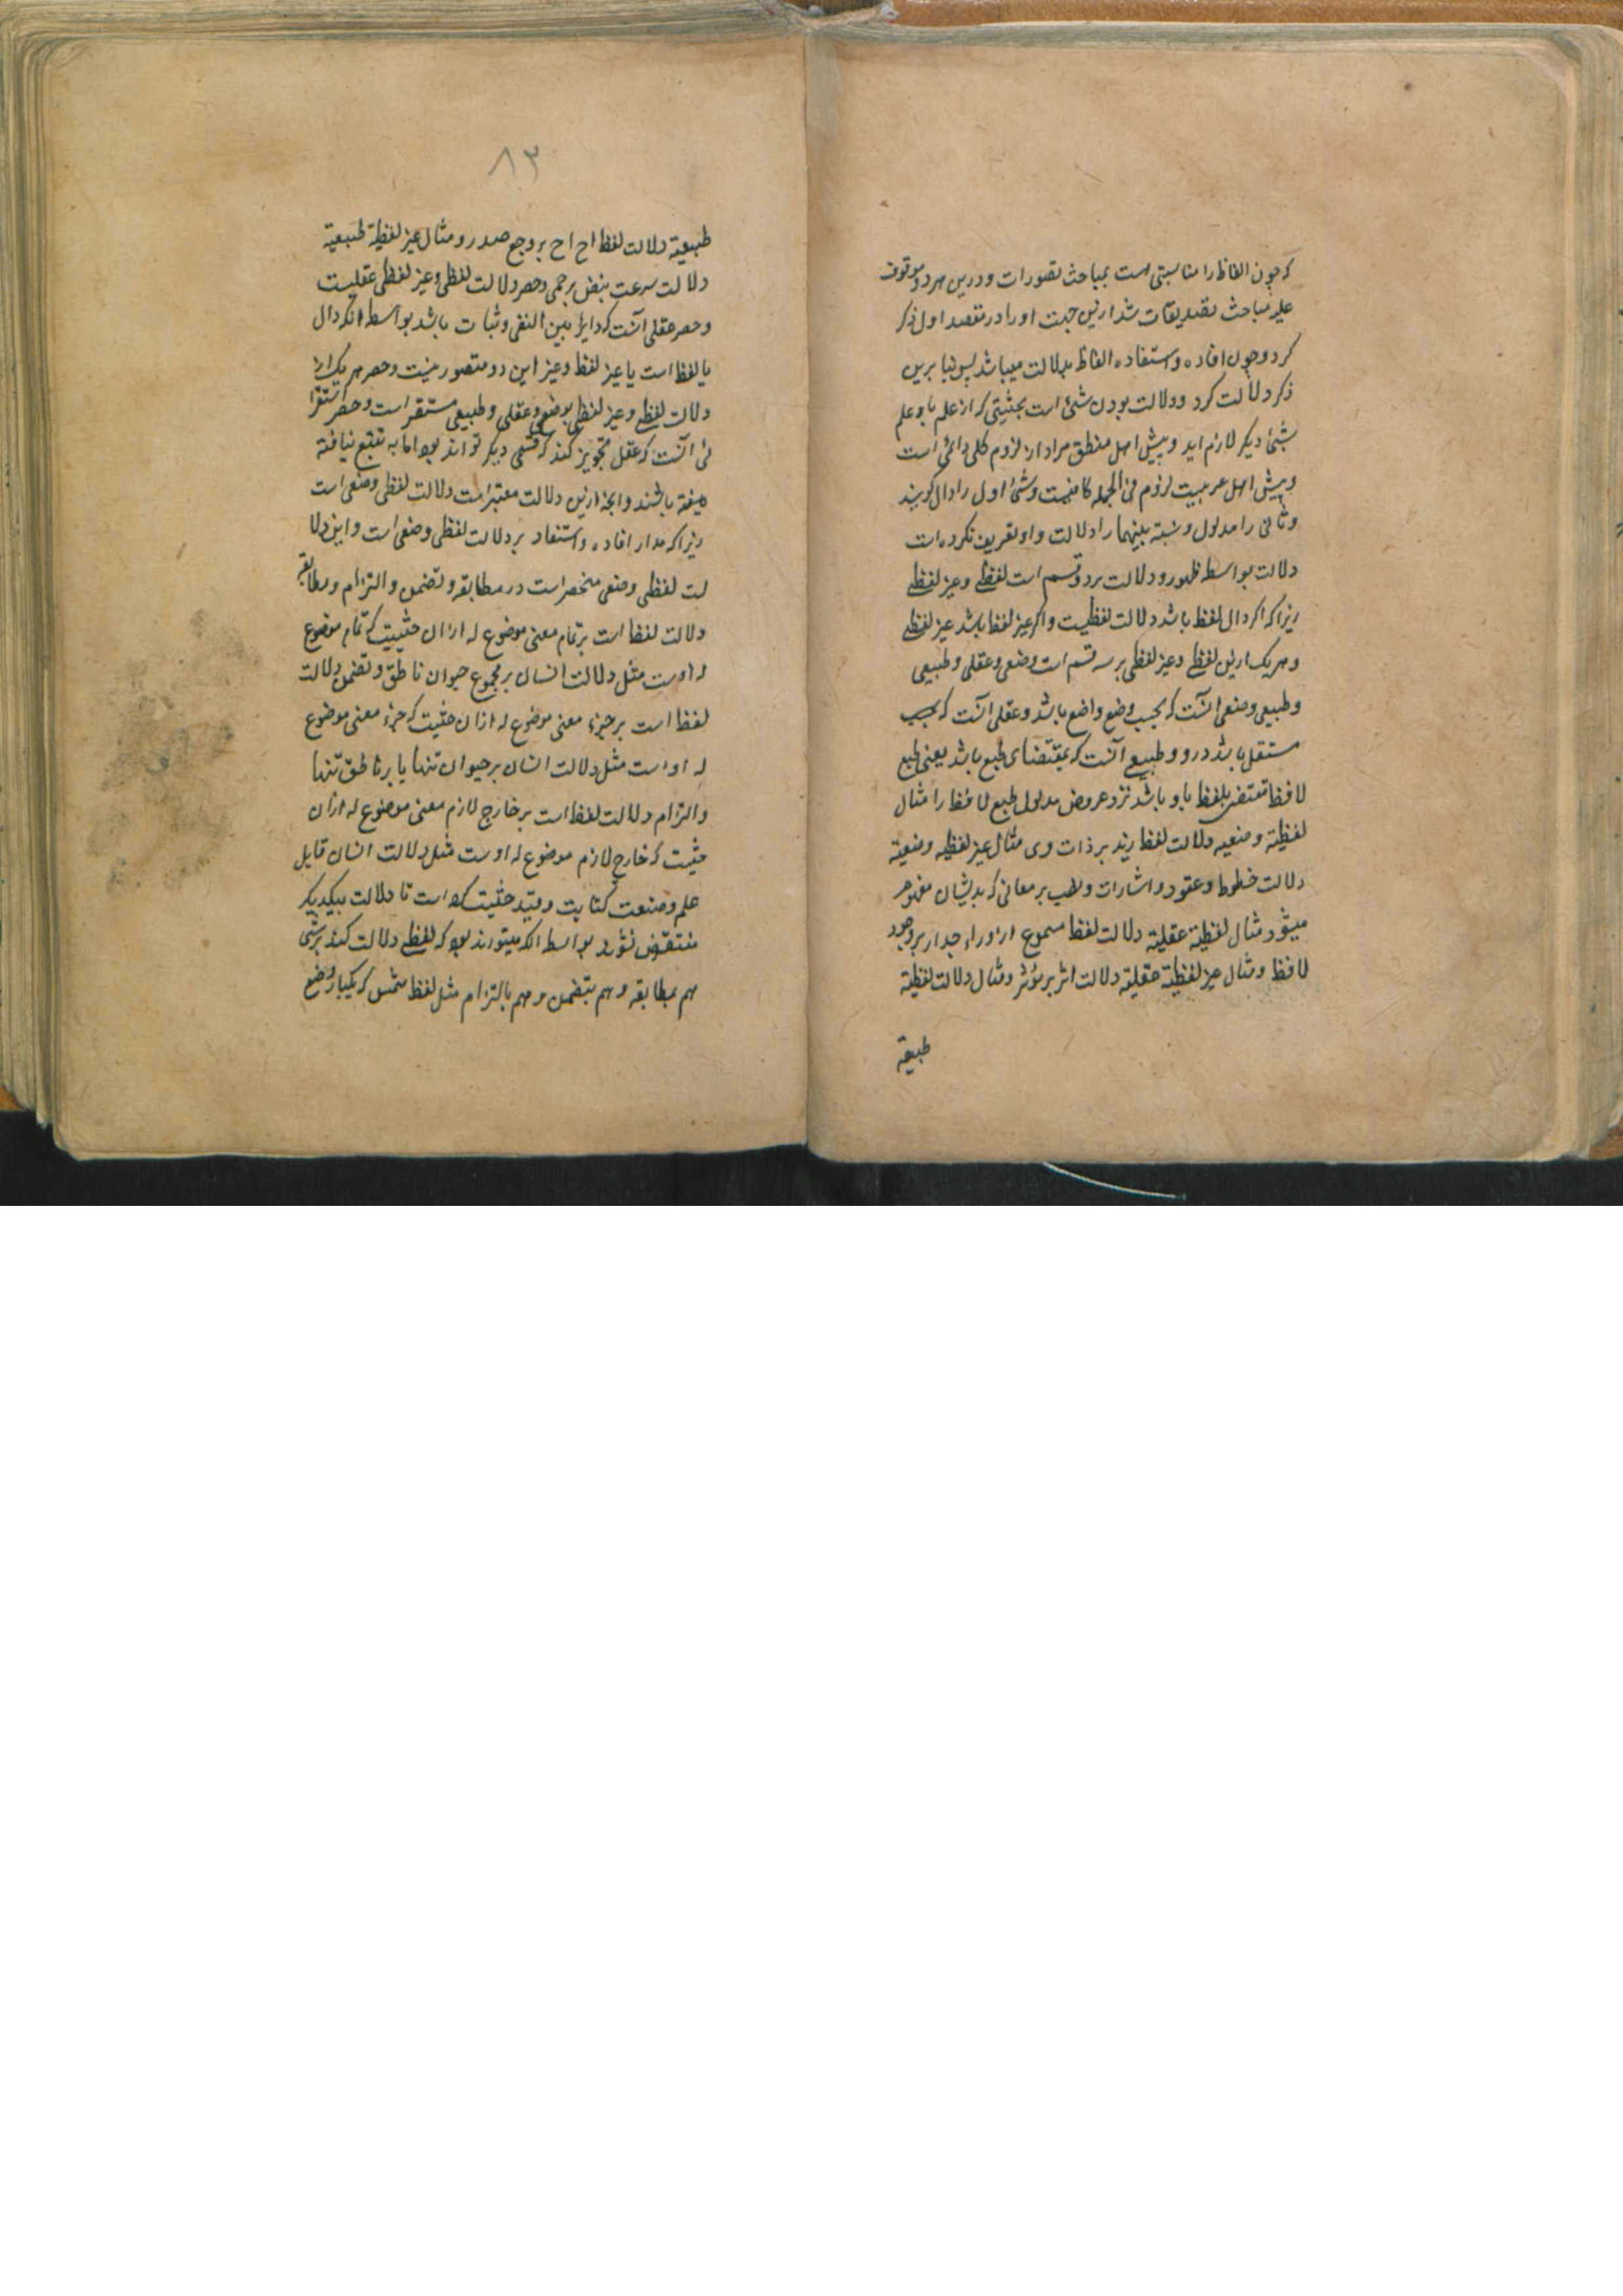 که چون الفاظ را مناسبتی هست بمباحث تصورات و درین هر دو موقوف
علیه مباحث تصدیقات شد ازین جهت او را در مقصد اول ذکر
کرد و چون افاده و استفاده الفاظ بدلالت میباشد پس بنا برین
ذکر دلالت کرد و دلالت بودن شئ است بحثیتی که از علم باو علم
بشئ دیکر لازم اید و پیش اهل منطق مراد از لزوم کلی دائمی است
و پیش اهل عربیت لزوم فی الجمله کافیست و شئ اول را دال کویند
و ثانی را مدلول و نسبة بینهما را دلالت و او تعریف نکرده است
دلالت بواسطه ظهور و دلالت بر دو قسم است لفظی و غیر لفظی
زیرا که اکر دال لفظ باشد دلالت لفظیست و اکر غیر لفظ باشد غیر لفظی
و هر یک ازین لفظی و غیر لفظی بر سه قسم است وضعی و عقلی و طبیعی
و طبیعی وضعی انست که بحسب وضع واضع باشد و عقلی انست که بحسب
مستقل باشد درو و طبیعی آنست که بمقتضای طبع باشد یعنی طبع
لافظ مقتضی بلفظ باو باشد نزد عروض مدلول طبع لافظ را مثال
لفظیة وضعیه دلالت لفظ زید بر ذات وی مثال غیر لفظیه وضعیة
دلالت خطوط و عقود و اشارات و نصب بر معانی که بدیشان مفهوم
میشود مثال لفظیة عقلیة دلالت لفظ مسموع از وراء جدار بر وجود
لافظ و مثال غیر لفظیة عقلیة دلالت اثر بر مؤثر و مثال دلالت لفظیة
طبیعیة
۸۳
طبیعیة دلالت لفظ اح اح بر وجع صدر و مثال غیر لفظیة طبیعیة
دلالت سرعت نبض بر حمی و حصر دلالت لفظی و غیر لفظی عقلیست
و حصر عقلی آنست که دایر بین النفی و ثبات باشد بواسطه انکه دال
یا لفظ است یا غیر لفظ و غیر این دو متصور نیست و حصر هر یک از
دلالت لفظی و غیر لفظی بوضعی و عقلی و طبیعی مستقر است و حصر استقرا
ئی آنست که عقل تجویز کند که قسمی دیکر تواند بود اما به تتبع نیافته
باشند و انچه ازین دلالت معتبراست دلالت لفظی وضعی است
زیرا که مدار افاده و استفاد بر دلالت لفظی وضعی است و این دلا
لت لفظی وضعی منحصر است در مطابقه و تضمن و التزام و مطابقه
دلالت لفظ است بر تمام معنی موضوع له از ان حثییت که تمام موضوع
له اوست مثل دلالت انسان بر مجموع حیوان ناطق و تضمن دلالت
لفظ است بر جزء معنی موضوع له از ان حثیت که جزء معنی موضوع
له او است مثل دلالت انسان بر حیوان تنها یا بر ناطق تنها
و التزام دلالت لفظ است بر خارج لازم معنی موضوع له از ان
حثیت که خارج لازم موضوع له اوست مثل دلالت انسان قابل
علم و صنعت کتابت و قید حثیت کرده است تا دلالت بیکدیکر
منتقض نشود بواسطه انکه میتواند بود که لفظی دلالت کند بر شی
هم بمطابقه و هم بتضمن و هم بالتزام مثل لفظ شمس که یکبار وضع